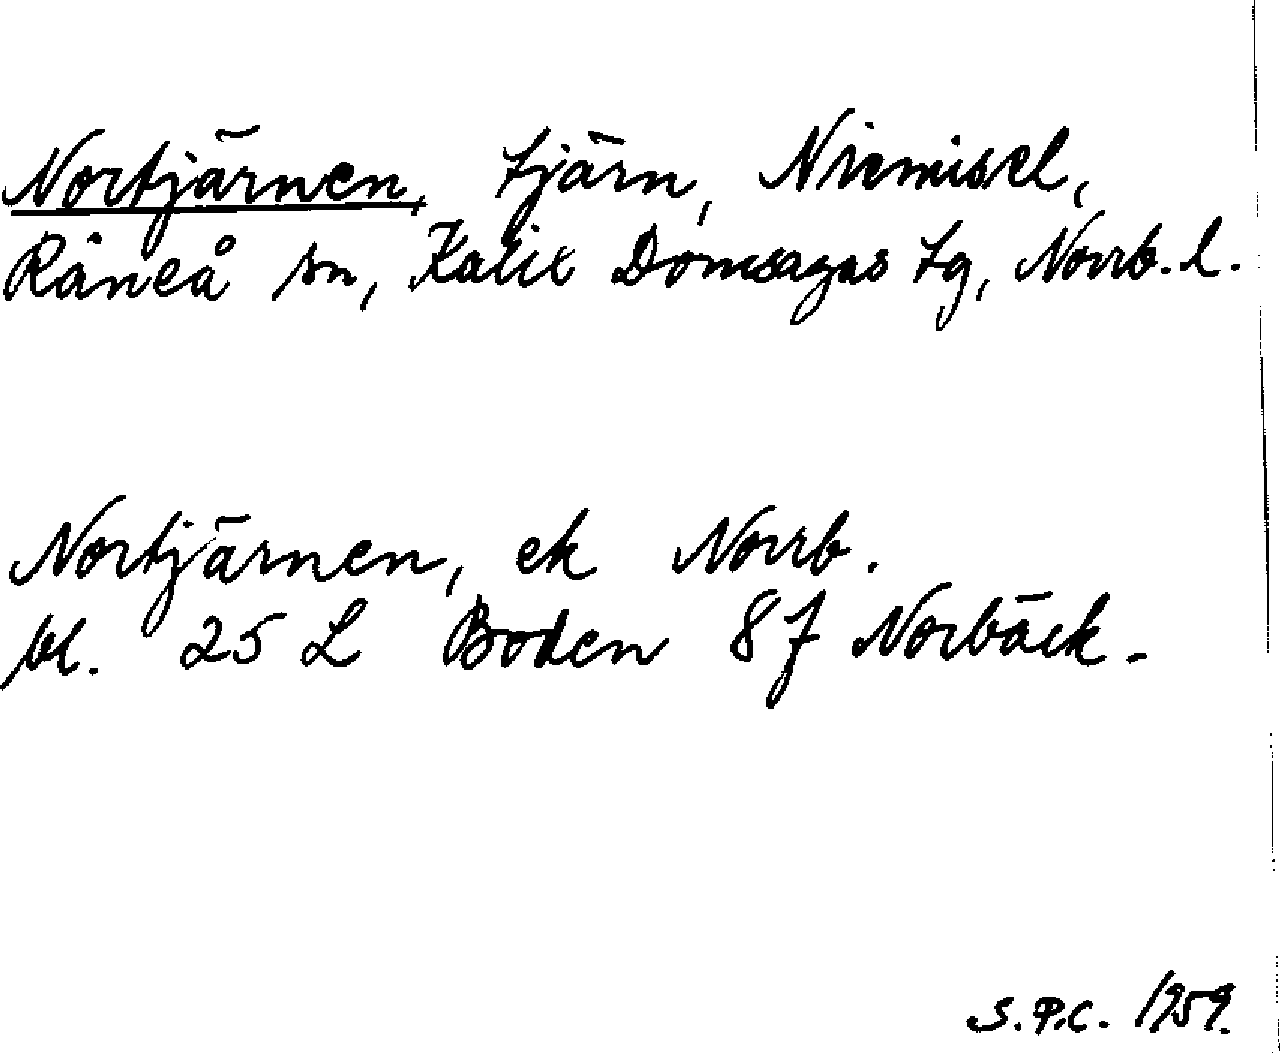 Nortjärnen, tjärn, Niemisel,
Råneå sn, Kalix Domsagas tg, Norrb. l.
Nortjärnen, ek Norrb.
bl. 25 L Boden 8f Norbäck.
S.P.C. 1959.